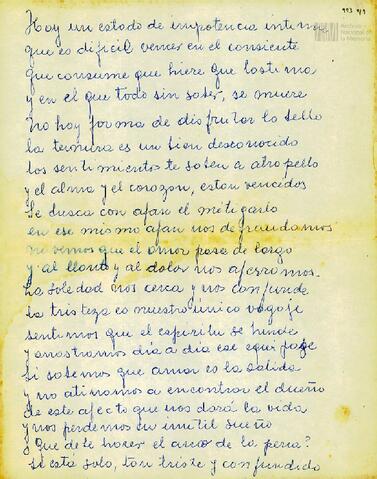 993 4/1
Archivo
Nacional de
la Memoria
Hay un estado de impotencia interna
que es dificil vencer en el consiente
que consume que hiere que lastima
y en el que todo sin saber, se muere
No hay forma de disfrutar lo bello
la ternura es un bien desconocido
los sentimientos te saben a atropello
y el alma y el corazon, estan vencidos
Se busca con afan el mitigarlo
en ese mismo afan nos
no vemos que el amor pasa de largo
y al llanto y al dolor nos aferramos
La soledad nos cerca y nos confunde
la tristeza es nuestro único bagaje
sentimos que el espiritu se hunde
y arrastramos dia a dia ese equipaje
Si sabemos que amar es la salida
y no atinamos a encontrar el dueño
de este afecto que nos dará la vida
y nos perdemos en inutil sueño
¿Que debe hacer el amo de la pena?
Si está solo, tan triste y confundido